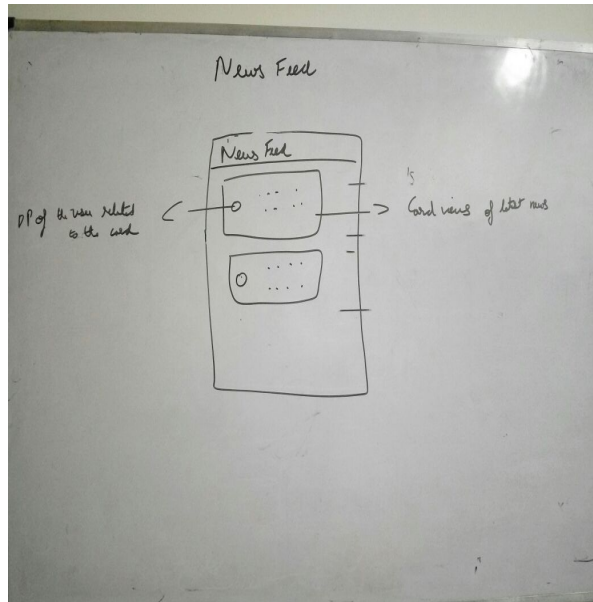 News Feed
News Feed
DP of the user related
to the card
Card views of latest news